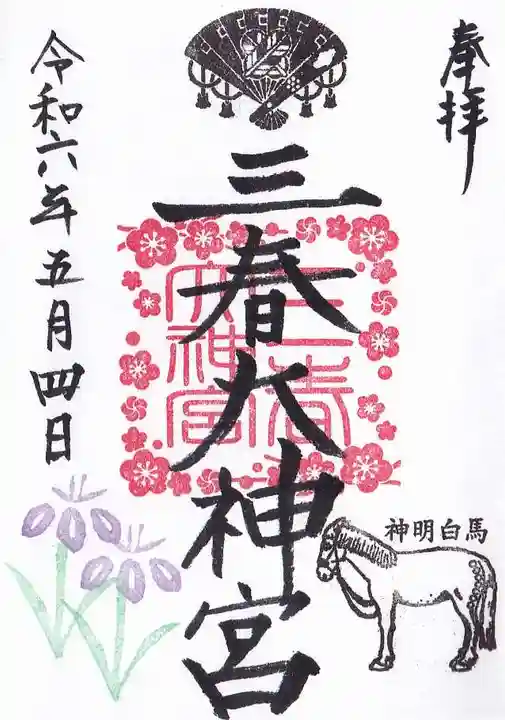 奉拝
三春大神宮
三春
大神宮
令和六年五月四日
神明白馬